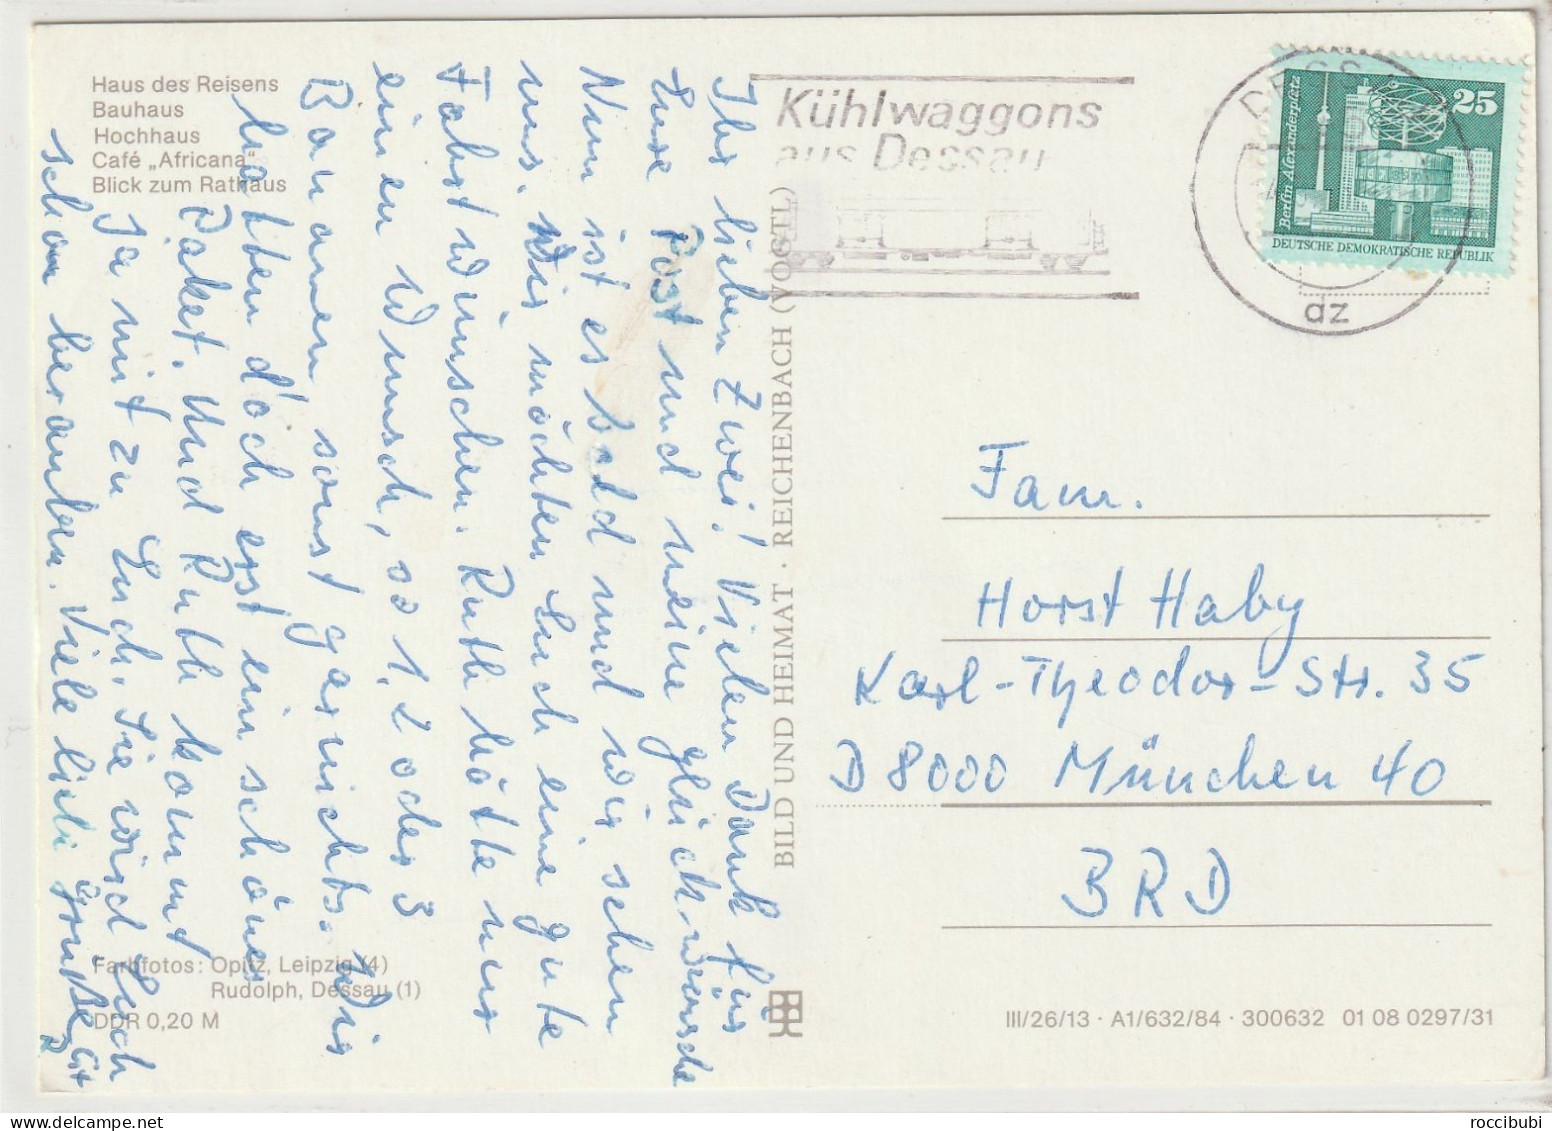 Haus des Reisens
Bauhaus
Hochhaus
Café „Africana“
Blick zum Rathaus
Ihr lieben Zwei! Vielen Dank für
Eure Post und meine Glückwünsche
Nun ist es bald und wir sehen
uns. Wir möchten Euch eine gute
Fahrt wünschen. Ruth hätte nur
einen Wunsch, so 1, 2 oder 3
Bananen sonst garnichts. Wir
hatten doch erst ein schönes
Paket. Und Ruth kommt
ja mit zu Euch. Sie wird Euch
schon beraten. Viele liebe Grüße
Farbfotos: Opitz, Leipzig (4)
Rudolph, Dessau (1)
DDR 0,20 M
BILD UND HEIMAT · REICHENBACH (VOGTL)
Kühlwaggons
aus Dessau
DESS
az
25
Berlin-Alexanderplatz
DEUTSCHE DEMOKRATISCHE REPUBLIK
Fam.
Horst Haby
Karl-Theodor-Str. 35
D 8000 München 40
BRD
III/26/13 · A1/632/84 · 300632 01 08 0297/31
roccibubi